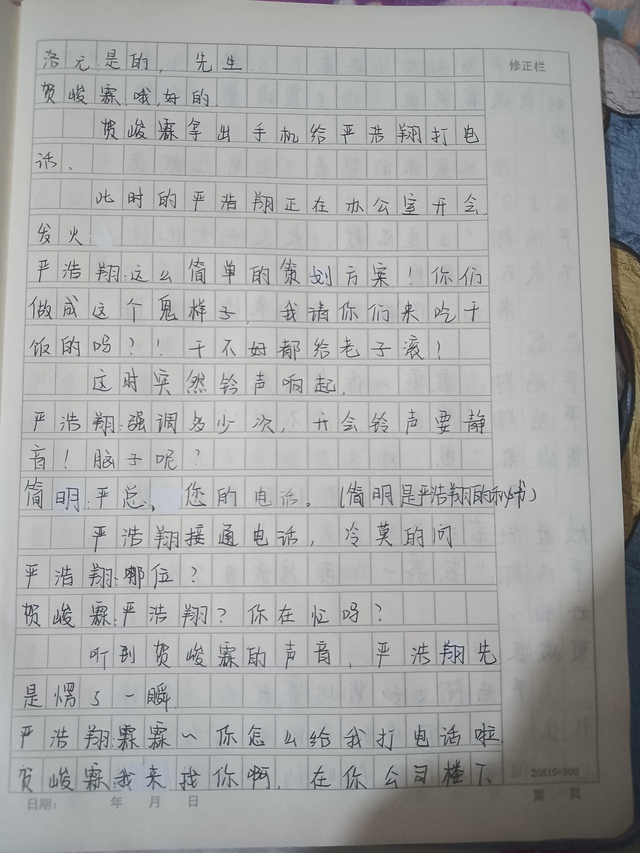 洛元:是的，先生
修正栏
贺峻霖:哦,好的.
贺峻霖拿出手机给严浩翔打电
话、
此时的严浩翔正在办公室开会
发火
严浩翔:这么简单的策划方案！你们
做成这个鬼样子，我请你们来吃干
饭的吗？！干不好都给老子滚！
这时突然铃声响起.
严浩翔:强调多少次，开会铃声要静
音！脑子呢？
简明:严总、您的电话。(简明是严浩翔的秘书)
严浩翔接通电话，冷莫的问
严浩翔:哪位？
贺峻霖:严浩翔？你在忙吗？
听到贺峻霖的声音，严浩翔先
是愣了一瞬
严浩翔:霖霖～你怎么给我打电话啦
贺峻霖:我来找你啊，在你公司楼下、
20X15=300
日期： 年 月 日 第 页